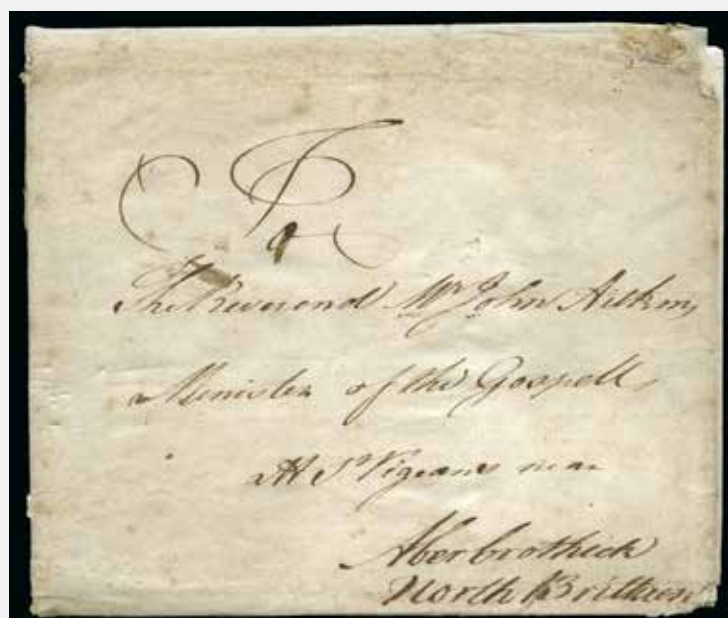 To
The Reverend Mr John Aitken
Minister of the Gospell
Att St Vigeans near
Aberbrothick
North Brittain